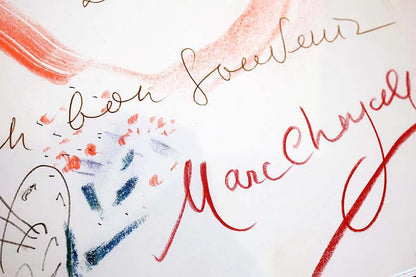 bon Souvenir
Marc Chagall